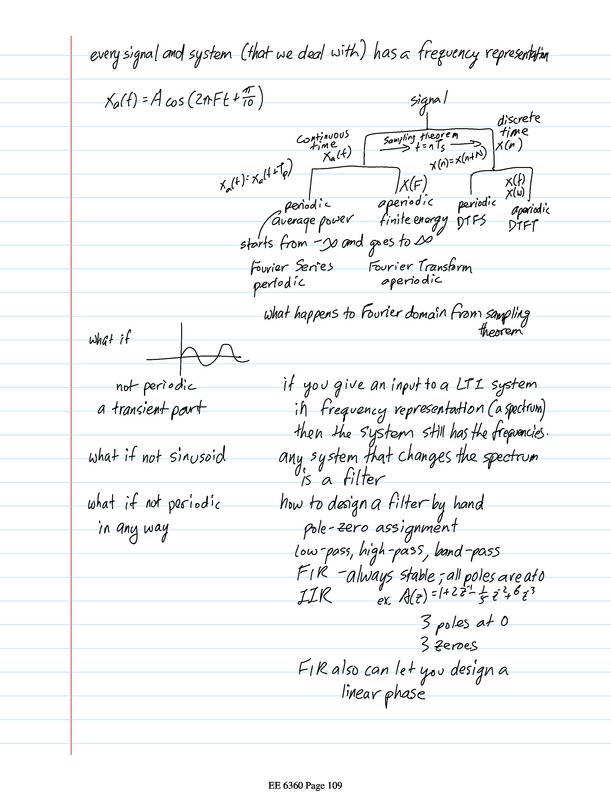 every signal and system (that we deal with) has a frequency representation
xₐ(t) = A cos (2πFt + π/10)
signal
continuous time xₐ(t)
Sampling theorem
t = nTs
discrete time x(n)
xₐ(t) = xₐ(t+Tp)
x(n) = x(n+N)
X(F)
X(f)
X(ω)
periodic
aperiodic
periodic
aperiodic
average power
finite energy
DTFS
DTFT
starts from -∞ and goes to ∞
Fourier Series
periodic
Fourier Transform
aperiodic
what happens to Fourier domain from sampling
theorem
what if
not periodic
a transient part
what if not sinusoid
what if not periodic
in any way
if you give an input to a LTI system
in frequency representation (a spectrum)
then the system still has the frequencies.
any system that changes the spectrum
is a filter
how to design a filter by hand
pole-zero assignment
low-pass, high-pass, band-pass
FIR - always stable; all poles are at 0
IIR ex. A(z) = 1+2z⁻¹-1/5 z⁻²+6z⁻³
3 poles at 0
3 zeroes
FIR also can let you design a
linear phase
EE 6360 Page 109